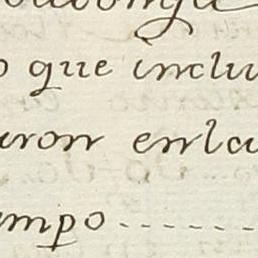 o que inclu
uron enla
mpo